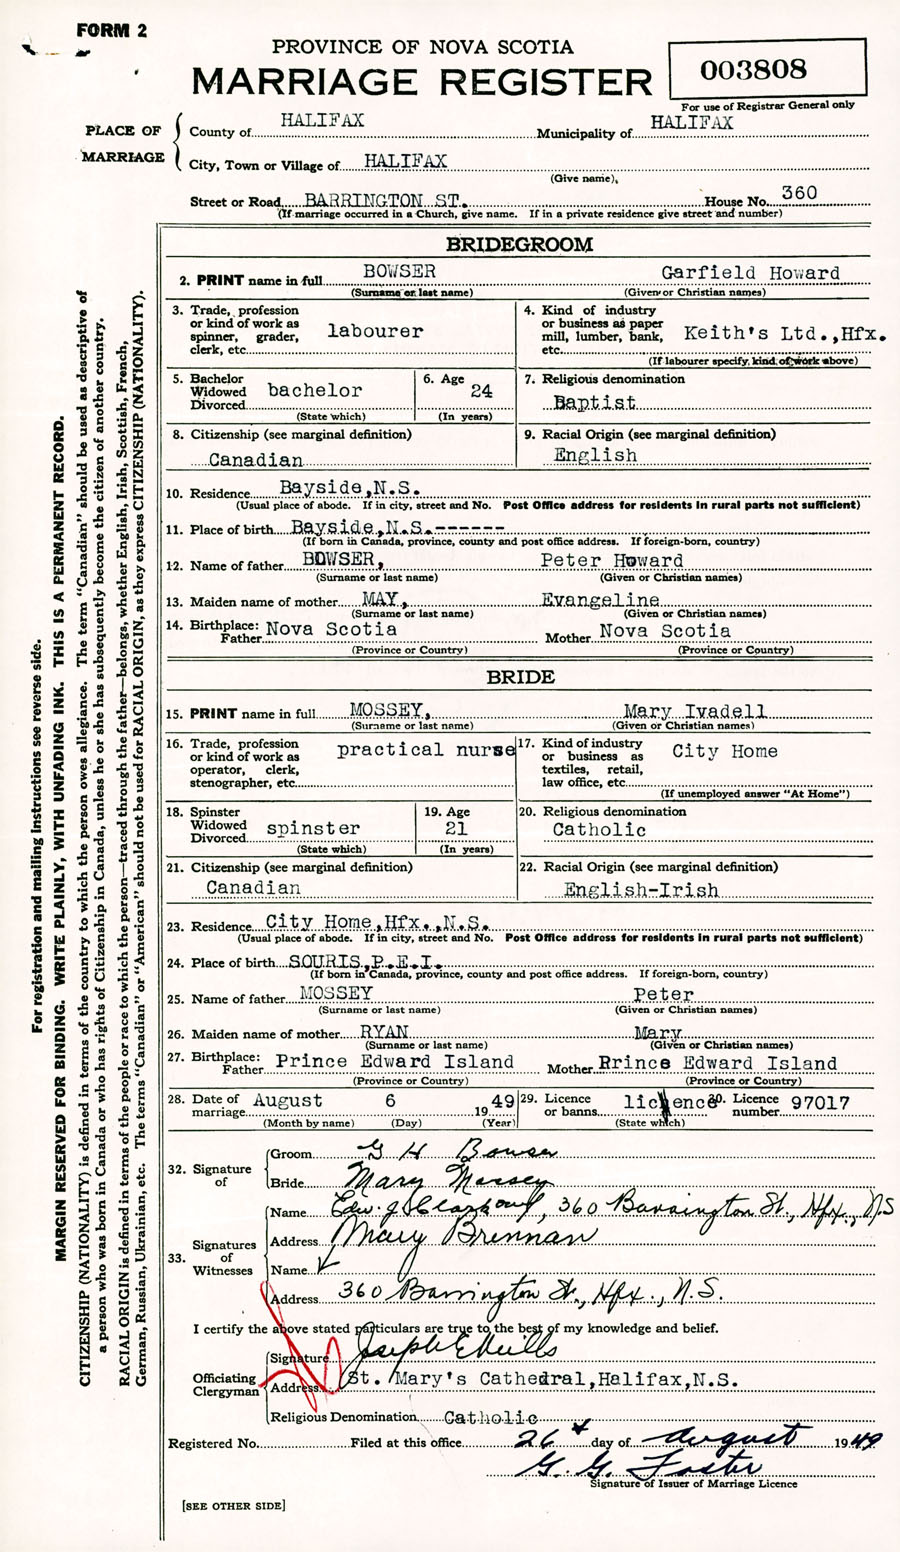 FORM 2
PROVINCE OF NOVA SCOTIA
MARRIAGE REGISTER
003808
For use of Registrar General only
PLACE OF MARRIAGE
County of HALIFAX Municipality of HALIFAX
City, Town or Village of HALIFAX
(Give name)
Street or Road BARRINGTON ST. House No. 360
(If marriage occurred in a Church, give name. If in a private residence give street and number)
BRIDEGROOM
2. PRINT name in full BOWSER Garfield Howard
(Surname or last name) (Given or Christian names)
3. Trade, profession or kind of work as spinner, grader, clerk, etc. labourer
4. Kind of industry or business as paper mill, lumber, bank, etc. Keith's Ltd.,Hfx.
(If labourer specify kind of work above)
5. Bachelor Widowed Divorced bachelor
(State which)
6. Age 24
(In years)
7. Religious denomination
Baptist
8. Citizenship (see marginal definition)
Canadian
9. Racial Origin (see marginal definition)
English
10. Residence Bayside,N.S.
(Usual place of abode. If in city, street and No. Post Office address for residents in rural parts not sufficient)
11. Place of birth Bayside,N.S.------
(If born in Canada, province, county and post office address. If foreign-born, country)
12. Name of father BOWSER, Peter Howard
(Surname or last name) (Given or Christian names)
13. Maiden name of mother MAY, Evangeline
(Surname or last name) (Given or Christian names)
14. Birthplace: Father Nova Scotia Mother Nova Scotia
(Province or Country) (Province or Country)
BRIDE
15. PRINT name in full MOSSEY, Mary Ivadell
(Surname or last name) (Given or Christian names)
16. Trade, profession or kind of work as operator, clerk, stenographer, etc. practical nurse
17. Kind of industry or business as textiles, retail, law office, etc. City Home
(If unemployed answer "At Home")
18. Spinster Widowed Divorced spinster
(State which)
19. Age 21
(In years)
20. Religious denomination
Catholic
21. Citizenship (see marginal definition)
Canadian
22. Racial Origin (see marginal definition)
English-Irish
23. Residence City Home,Hfx.,N.S.
(Usual place of abode. If in city, street and No. Post Office address for residents in rural parts not sufficient)
24. Place of birth SOURIS,P.E.I.
(If born in Canada, province, county and post office address. If foreign-born, country)
25. Name of father MOSSEY Peter
(Surname or last name) (Given or Christian names)
26. Maiden name of mother RYAN Mary
(Surname or last name) (Given or Christian names)
27. Birthplace: Father Prince Edward Island Mother Prince Edward Island
(Province or Country) (Province or Country)
28. Date of marriage August 6 1949
(Month by name) (Day) (Year)
29. Licence or banns licence
(State which)
30. Licence number 97017
32. Signature of
Groom G H Bowser
Bride Mary Mossey
33. Signatures of Witnesses
Name Edw. J., 360 Barrington St., Hfx., N.S
Address Mary Brennan
Name
Address 360 Barrington St., Hfx., N.S.
I certify the above stated particulars are true to the best of my knowledge and belief.
Officiating Clergyman
Signature Joseph E Mills
Address St. Mary's Cathedral,Halifax,N.S.
Religious Denomination Catholic
Registered No. Filed at this office 26 day of August 1949
G. G. Foster
Signature of Issuer of Marriage Licence
[SEE OTHER SIDE]
For registration and mailing instructions see reverse side.
MARGIN RESERVED FOR BINDING. WRITE PLAINLY, WITH UNFADING INK. THIS IS A PERMANENT RECORD.
CITIZENSHIP (NATIONALITY) is defined in terms of the country to which the person owes allegiance. The term "Canadian" should be used as descriptive of
a person who was born in Canada or who has rights of Citizenship in Canada, unless he or she has subsequently become the citizen of another country.
RACIAL ORIGIN is defined in terms of the people or race to which the person—traced through the father—belongs, whether English, Irish, Scottish, French,
German, Russian, Ukrainian, etc. The terms "Canadian" or "American" should not be used for RACIAL ORIGIN, as they express CITIZENSHIP (NATIONALITY).